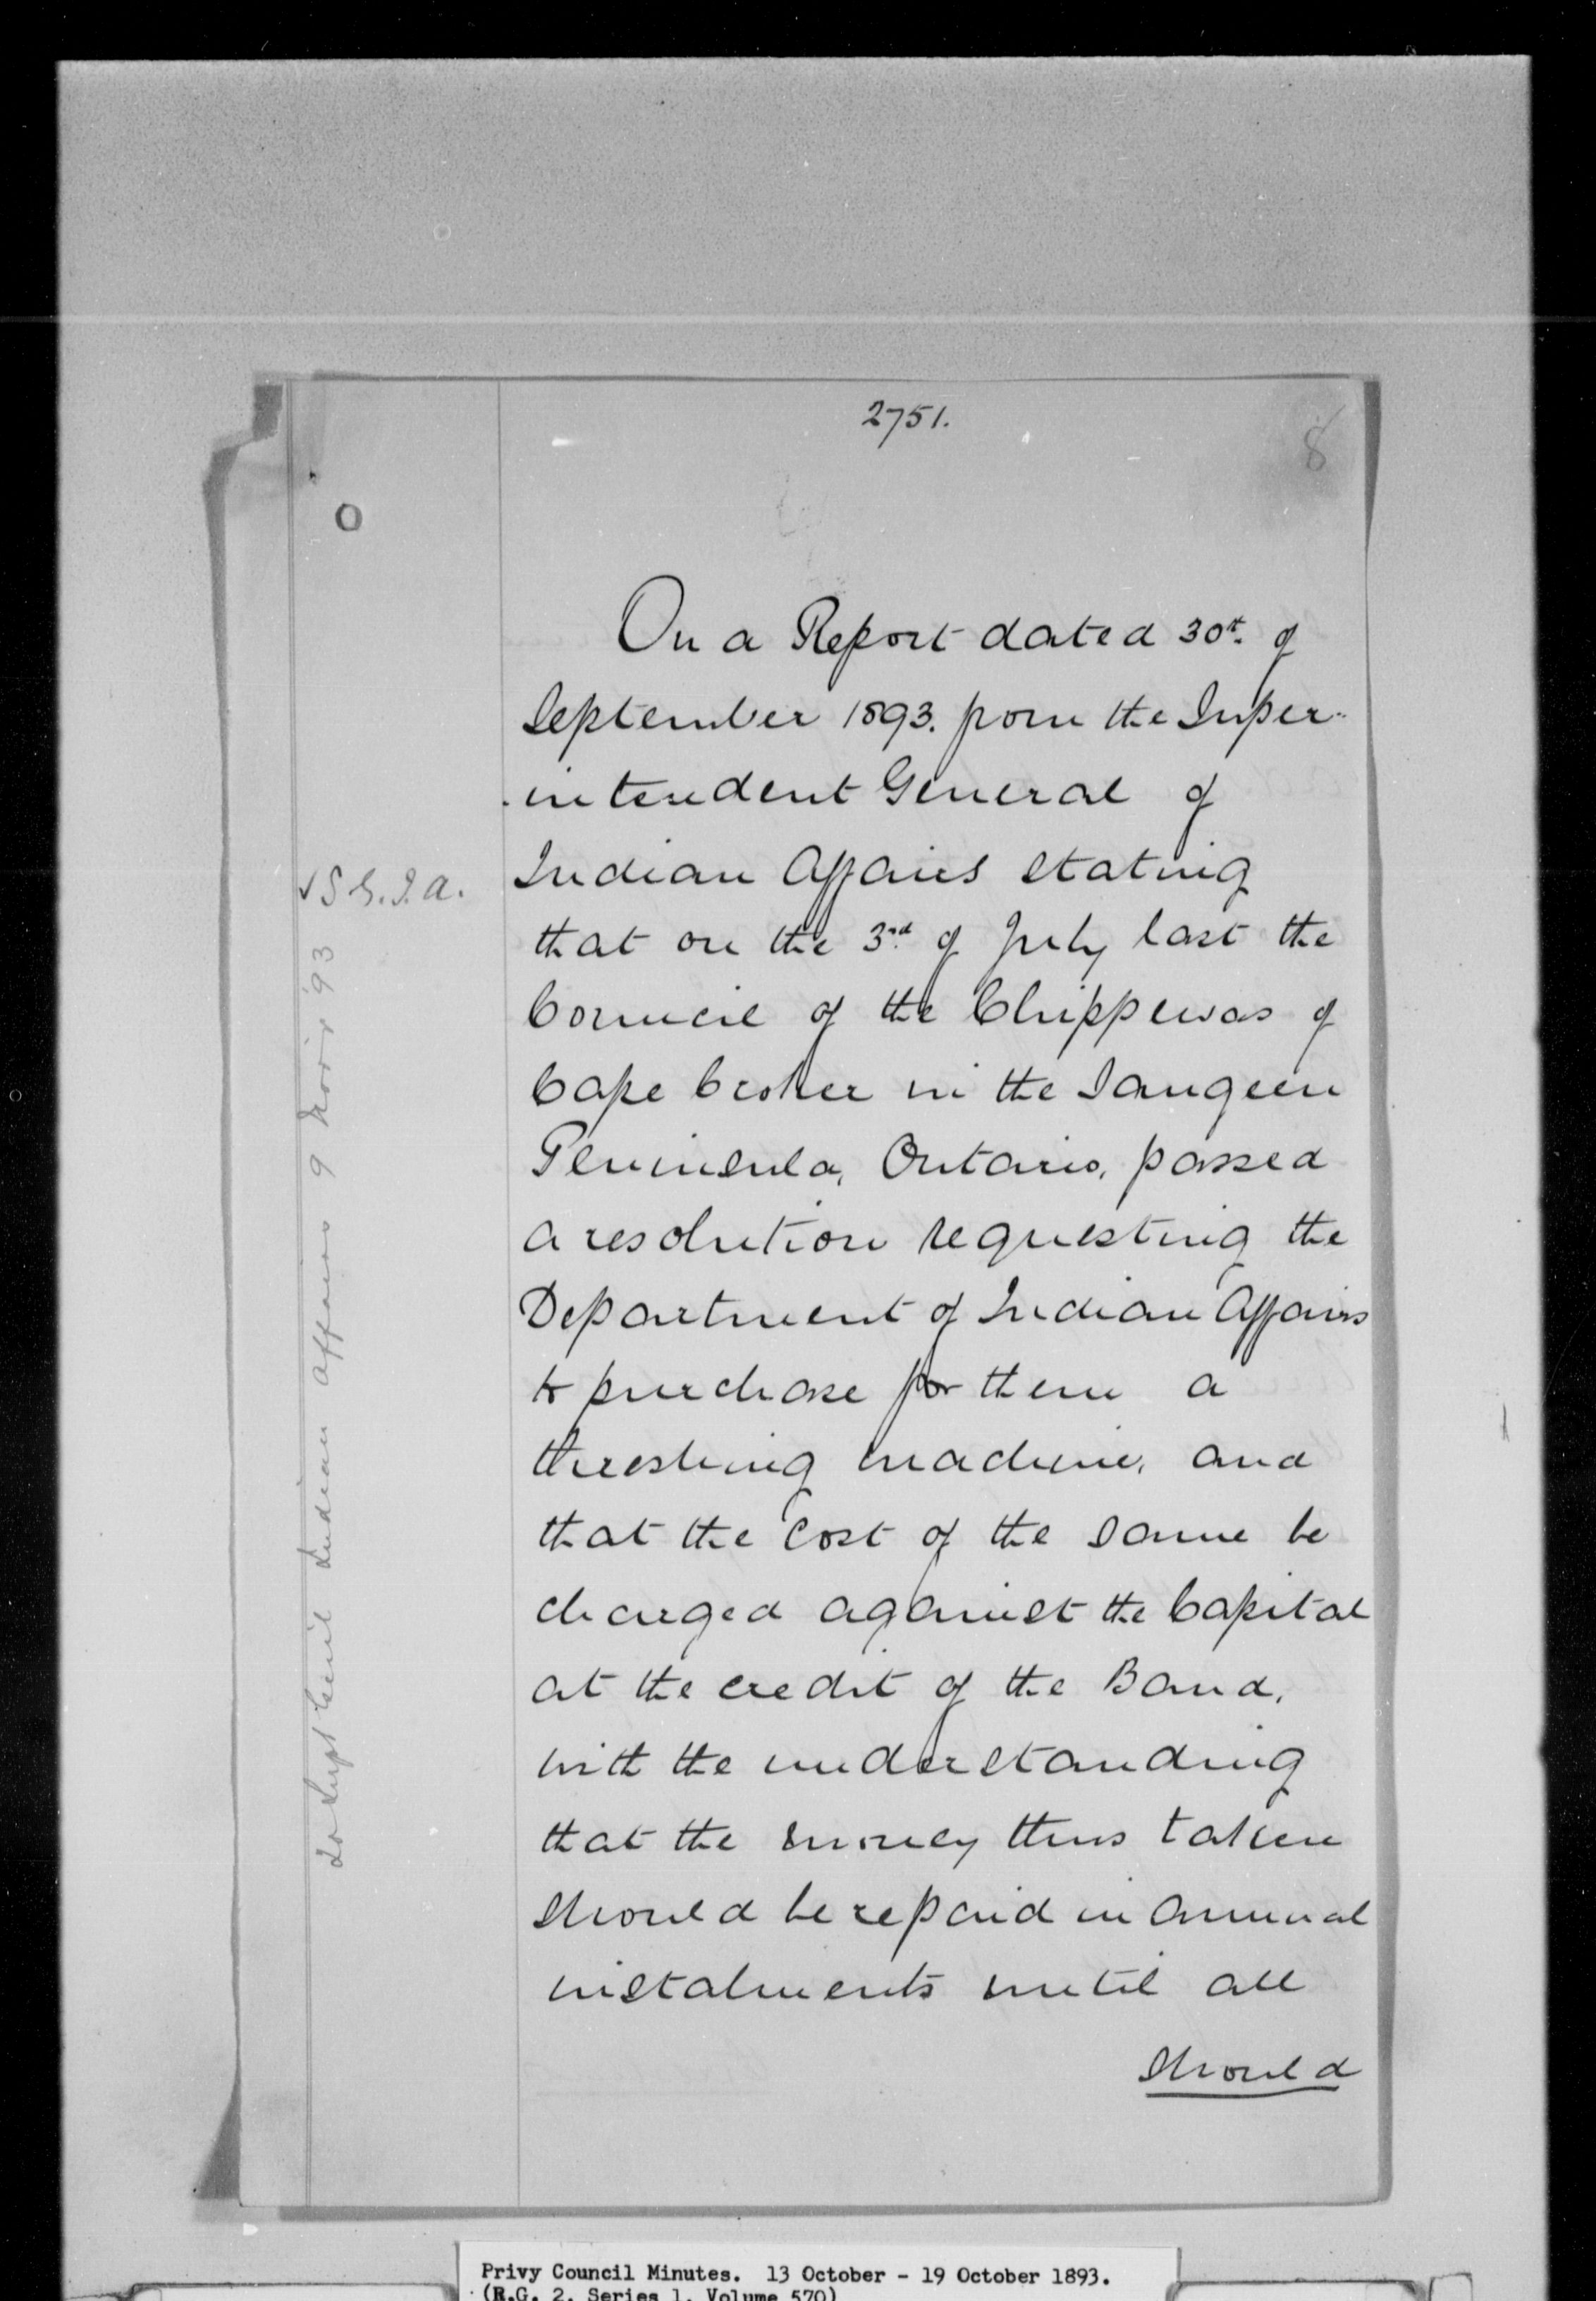 2751.
8
On a Report dated 30th. of
September 1893. from the Super-
-intendent General of
Indian Affairs stating
√ S G. I. A.
that on the 3rd of July last the
Council of the Chippewas of
Cape Croker in the Saugeen
Peninsula, Ontario, passed
a resolution requesting the
Department of Indian Affairs
to purchase for them a
threshing machine, and
that the cost of the same be
charged against the Capital
at the credit of the Band,
with the understanding
that the money thus taken
should be repaid in annual
instalments until all
should
To Supt Genl Indian Affairs 9 Nov '93
Privy Council Minutes. 13 October - 19 October 1893.
(R.G. 2, Series 1, Volume 570)